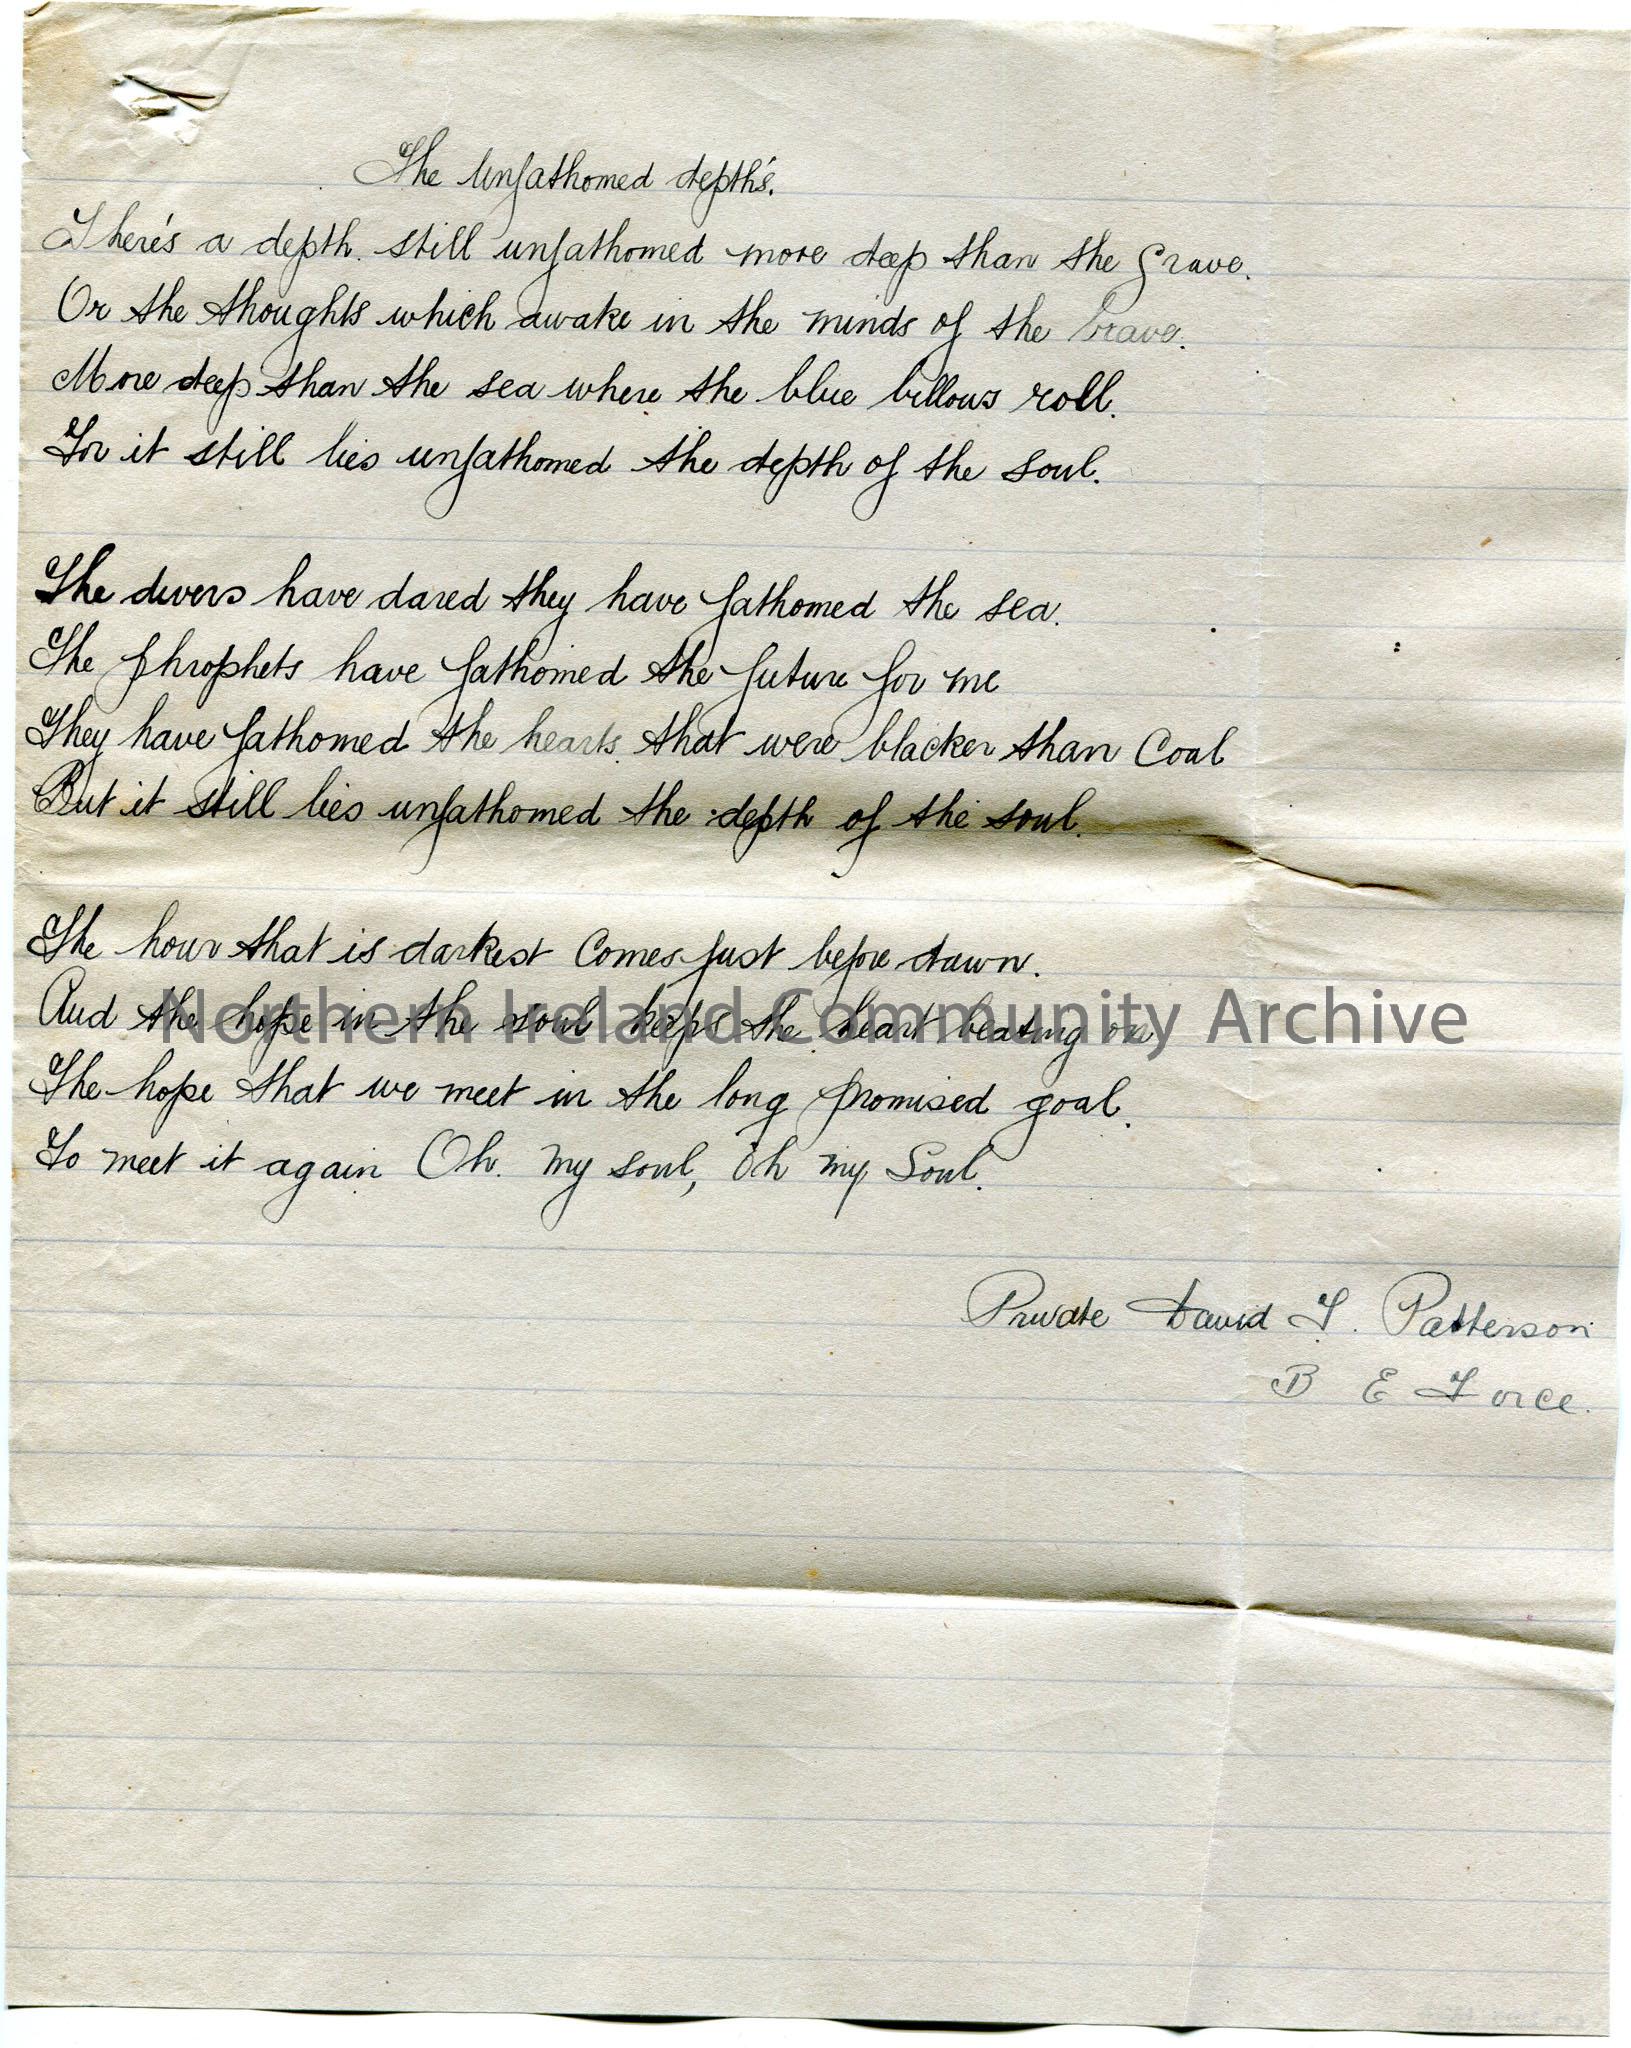 The Unfathomed depth's.
There's a depth. still unfathomed more deep than the Grave.
Or the thoughts which awake in the minds of the brave.
More deep than the sea where the blue billows roll.
For it still lies unfathomed the depth of the soul.
The divers have dared they have fathomed the sea.
The phrophets have fathomed the future for me
They have fathomed the hearts. that were blacker than Coal
But it still lies unfathomed the depth of the soul.
The hour that is darkest Comes just before dawn.
And the hope in the soul keeps the heart beating on
Northern Ireland Community Archive
The hope that we meet in the long promised goal.
To meet it again Oh. my soul, Oh my Soul.
Private David T. Patterson
B E Force.